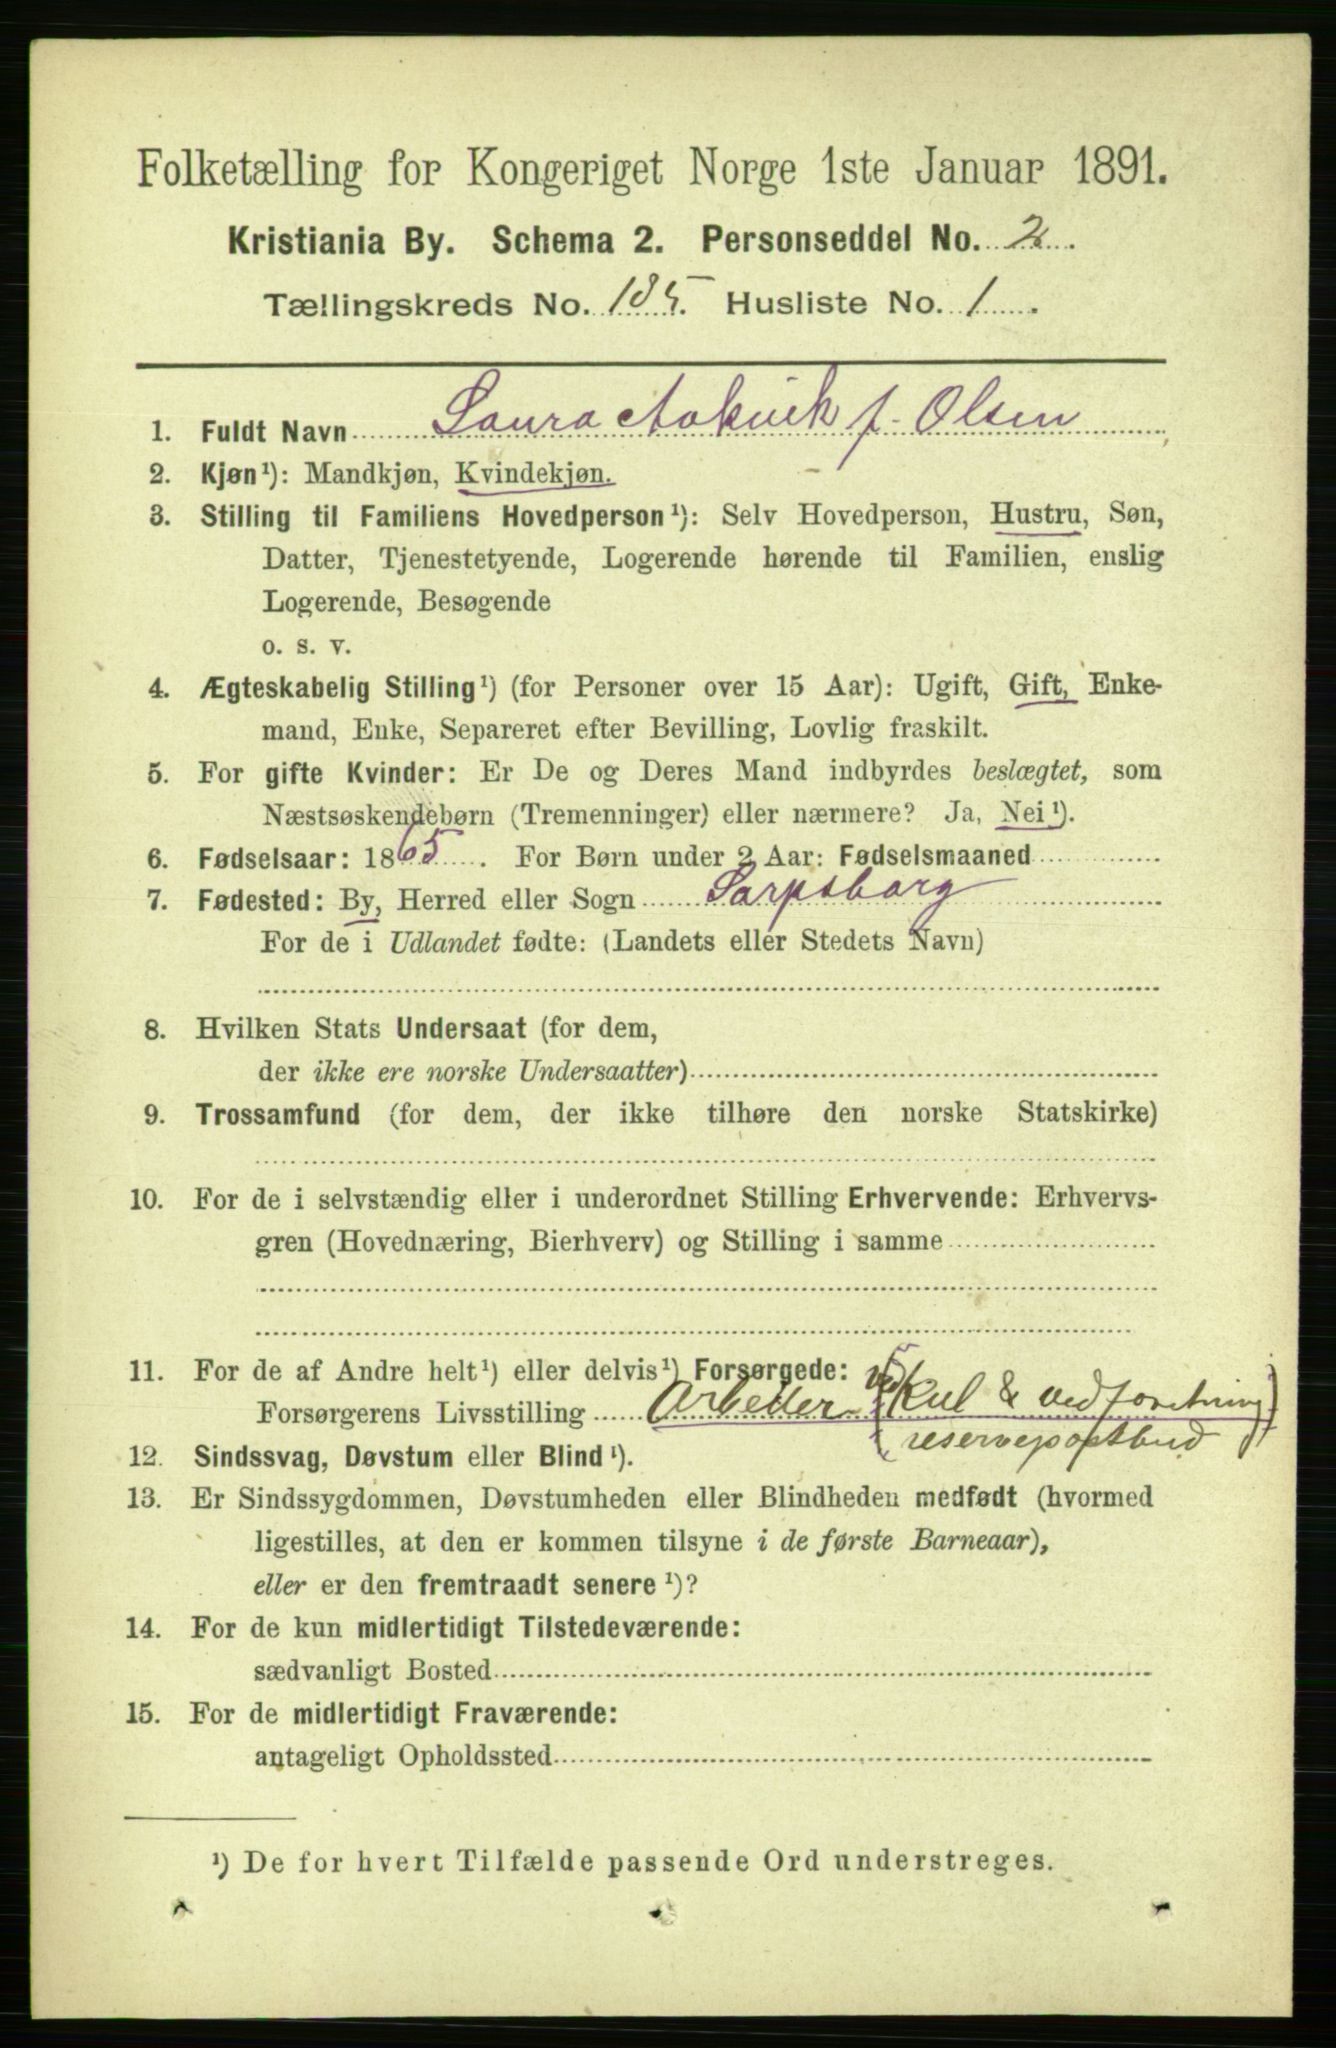 Folketælling for Kongeriget Norge 1ste Januar 1891.
Kristiania By. Schema 2. Personseddel No. 2.
Tællingskreds No. 185. Husliste No. 1.
1. Fuldt Navn Laura f. Olsen
2. Kjøn¹): Mandkjøn, Kvindekjøn.
3. Stilling til Familiens Hovedperson¹): Selv Hovedperson, Hustru, Søn,
Datter, Tjenestetyende, Logerende hørende til Familien, enslig
Logerende, Besøgende
o. s. v.
4. Ægteskabelig Stilling¹) (for Personer over 15 Aar): Ugift, Gift, Enke-
mand, Enke, Separeret efter Bevilling, Lovlig fraskilt.
5. For gifte Kvinder: Er De og Deres Mand indbyrdes beslægtet, som
Næstsøskendebørn (Tremenninger) eller nærmere? Ja, Nei¹).
6. Fødselsaar: 1865. For Børn under 2 Aar: Fødselsmaaned
7. Fødested: By, Herred eller Sogn Sarpsborg
For de i Udlandet fødte: (Landets eller Stedets Navn)
8. Hvilken Stats Undersaat (for dem,
der ikke ere norske Undersaatter)
9. Trossamfund (for dem, der ikke tilhøre den norske Statskirke)
10. For de i selvstændig eller i underordnet Stilling Erhvervende: Erhvervs-
gren (Hovednæring, Bierhverv) og Stilling i samme
11. For de af Andre helt¹) eller delvis¹) Forsørgede:
Forsørgerens Livsstilling Arbeider ved Kul & vedforretning
reservepostbud
12. Sindssvag, Døvstum eller Blind¹).
13. Er Sindssygdommen, Døvstumheden eller Blindheden medfødt (hvormed
ligestilles, at den er kommen tilsyne i de første Barneaar),
eller er den fremtraadt senere¹)?
14. For de kun midlertidigt Tilstedeværende:
sædvanligt Bosted
15. For de midlertidigt Fraværende:
antageligt Opholdssted
¹) De for hvert Tilfælde passende Ord understreges.